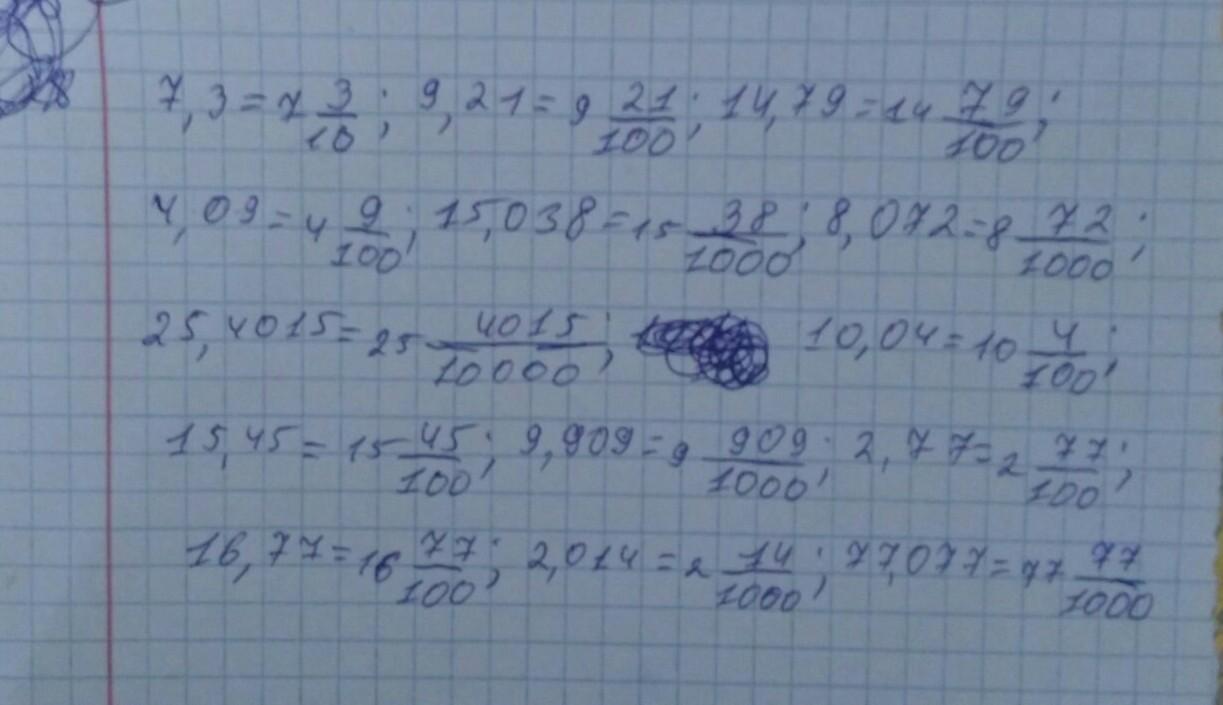 7,3 = 7 3/10; 9,21 = 9 21/100; 14,79 = 14 79/100;
4,09 = 4 9/100; 15,038 = 15 38/1000; 8,072 = 8 72/1000;
25,4015 = 25 4015/10000; 10,04 = 10 4/100;
15,45 = 15 45/100; 9,909 = 9 909/1000; 2,77 = 2 77/100;
16,77 = 16 77/100; 2,014 = 2 14/1000; 77,077 = 77 77/1000